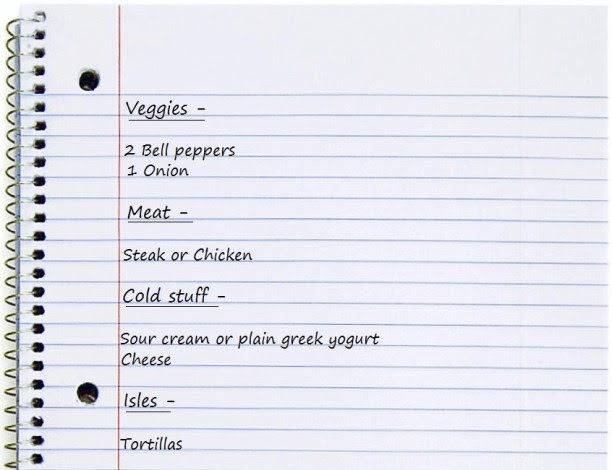 Veggies -
2 Bell peppers
1 Onion
Meat -
Steak or Chicken
Cold stuff -
Sour cream or plain greek yogurt
Cheese
Isles -
Tortillas